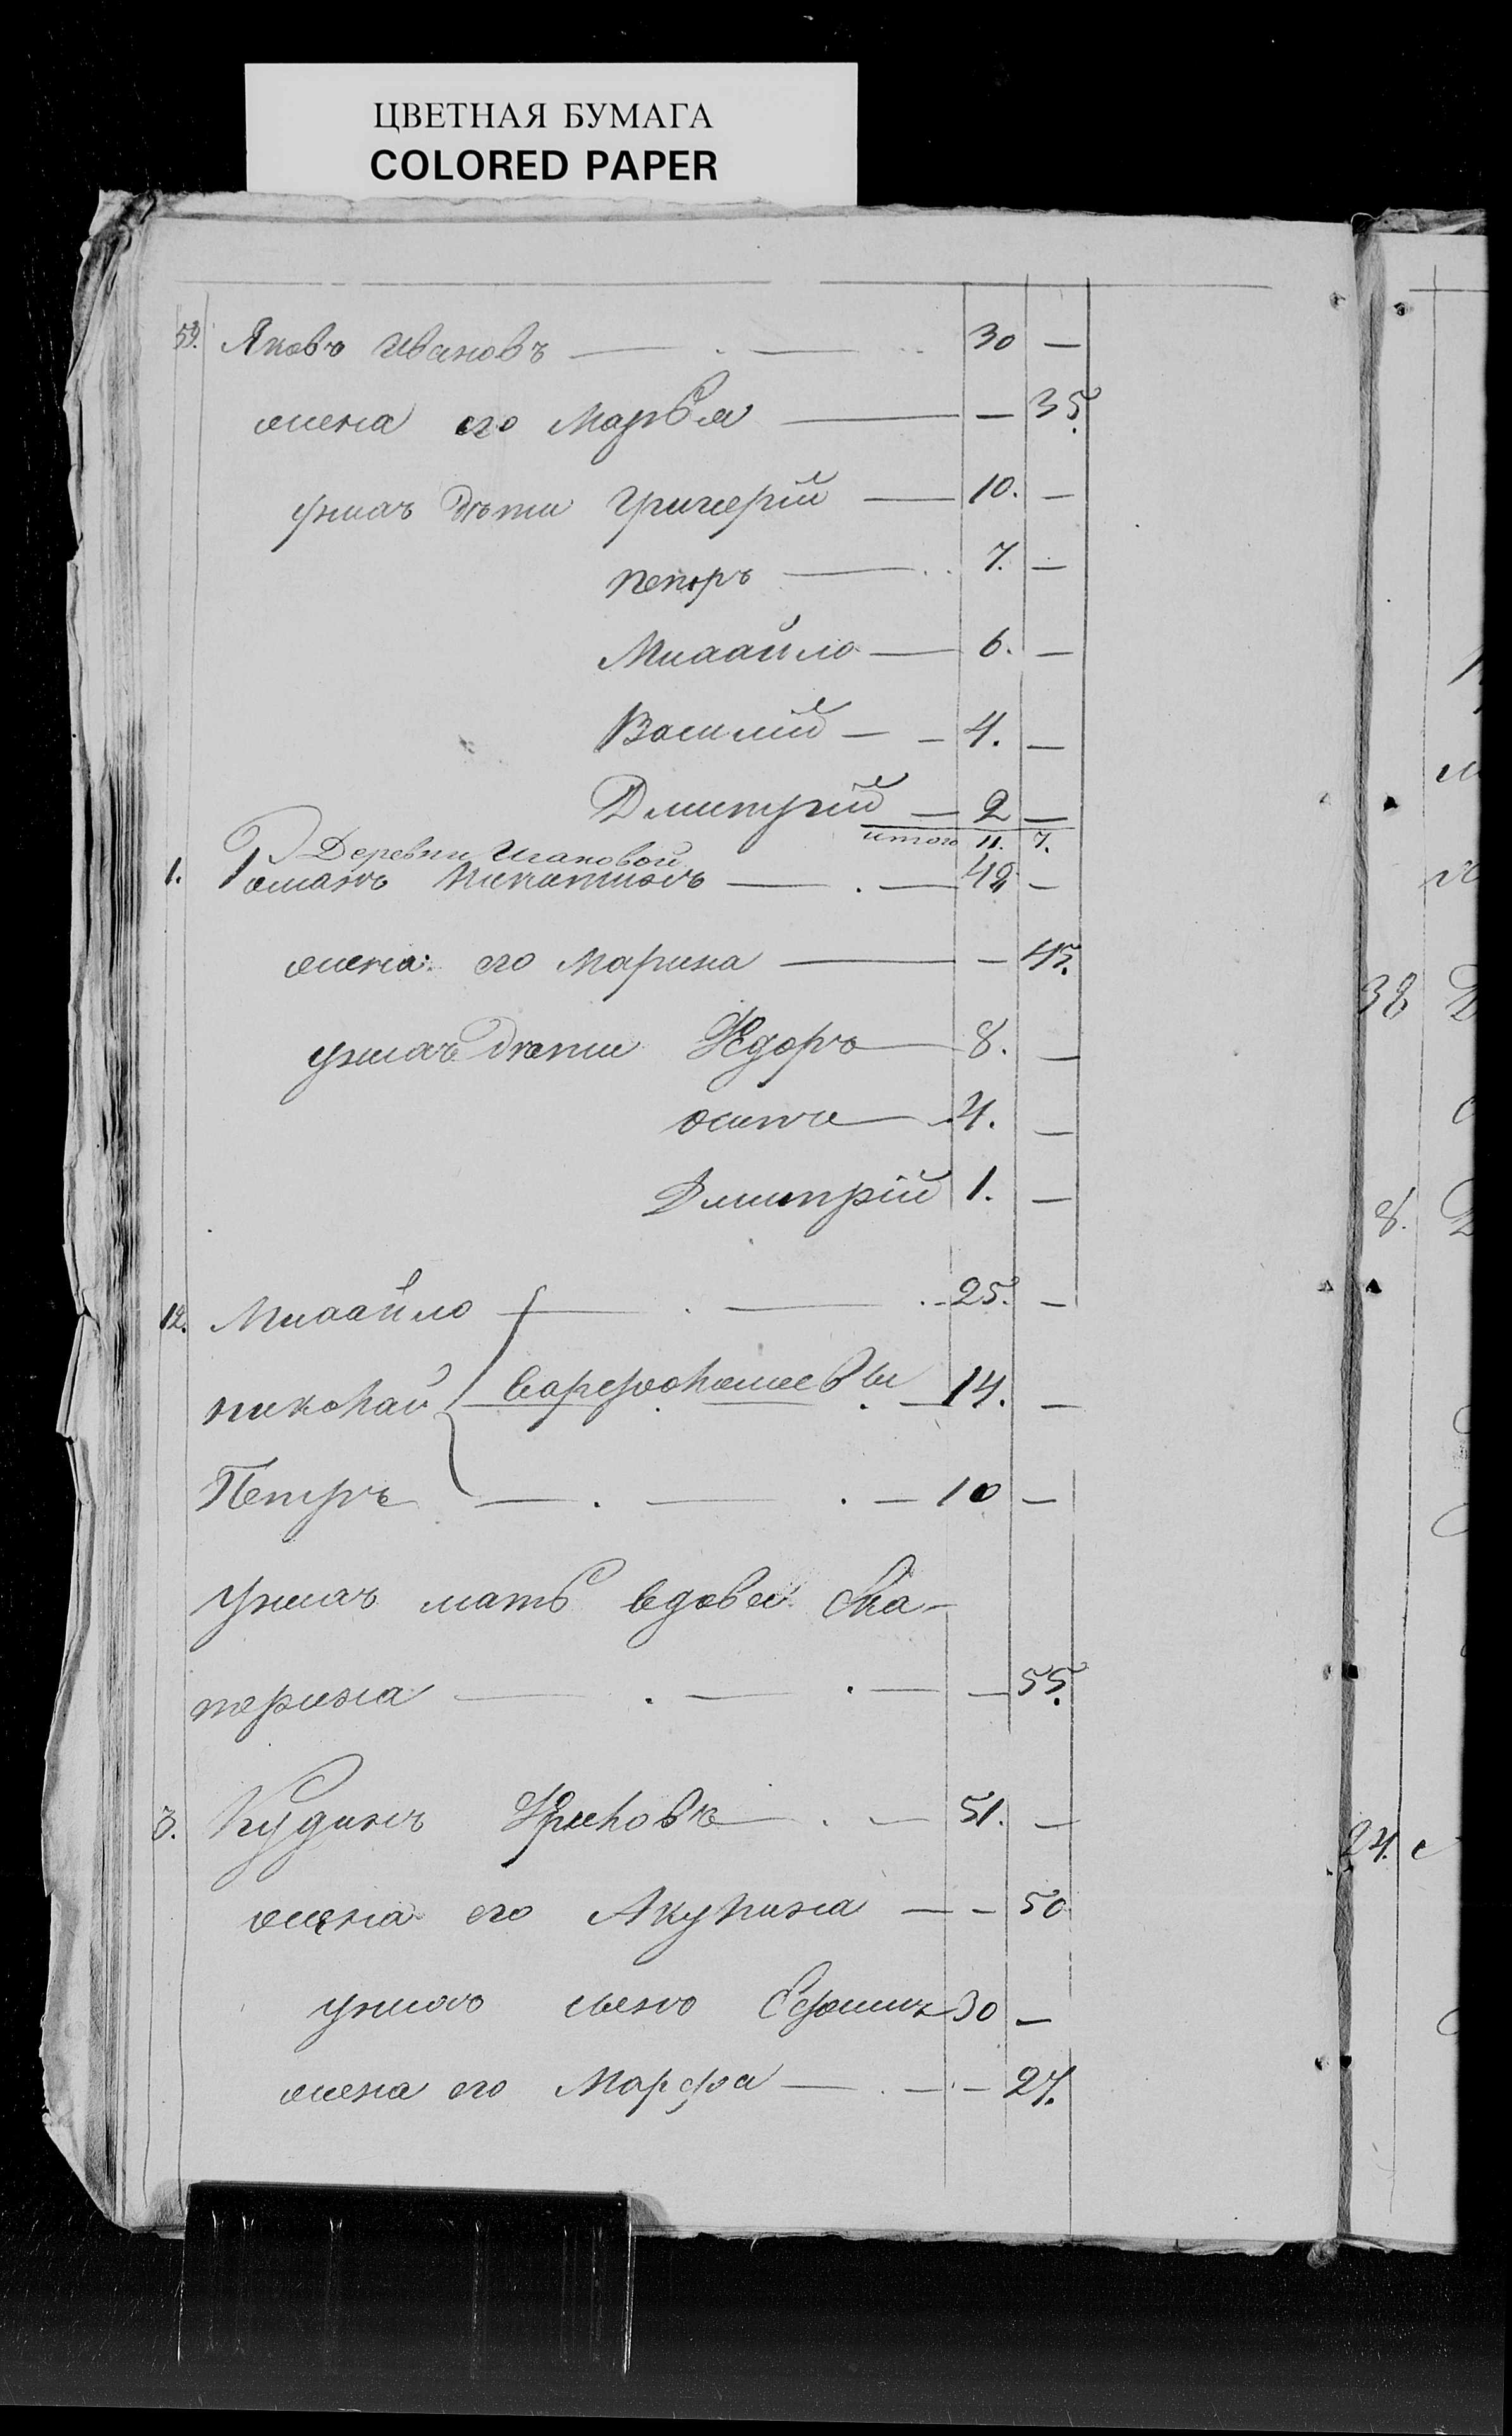 ЦВЕТНАЯ БУМАГА
COLORED PAPER
59. Яковъ Ивановъ — 30 —
жена его Марья — — 35.
у нихъ дѣти Григорій — 10. —
Петръ — 7. —
Михайло — 6. —
Василій — 4. —
Дмитрій — 2 —
итого 11. 7.
Деревни
1. Романъ Никитинъ — 42 —
жена его Марина — — 45.
у нихъ дѣти Ѳедоръ — 8. —
осипъ — 4. —
Дмитрій 1. —
12. Михайло — 25. —
николай 14. —
Петръ — 10 —
У нихъ мать вдова Ека-
терина — — 55.
3. Кудинъ — 51. —
жена его Акулина — — 50
у нихъ сынъ Ефимъ 30 —
жена его Марфа — — 27.
38
8.
24.